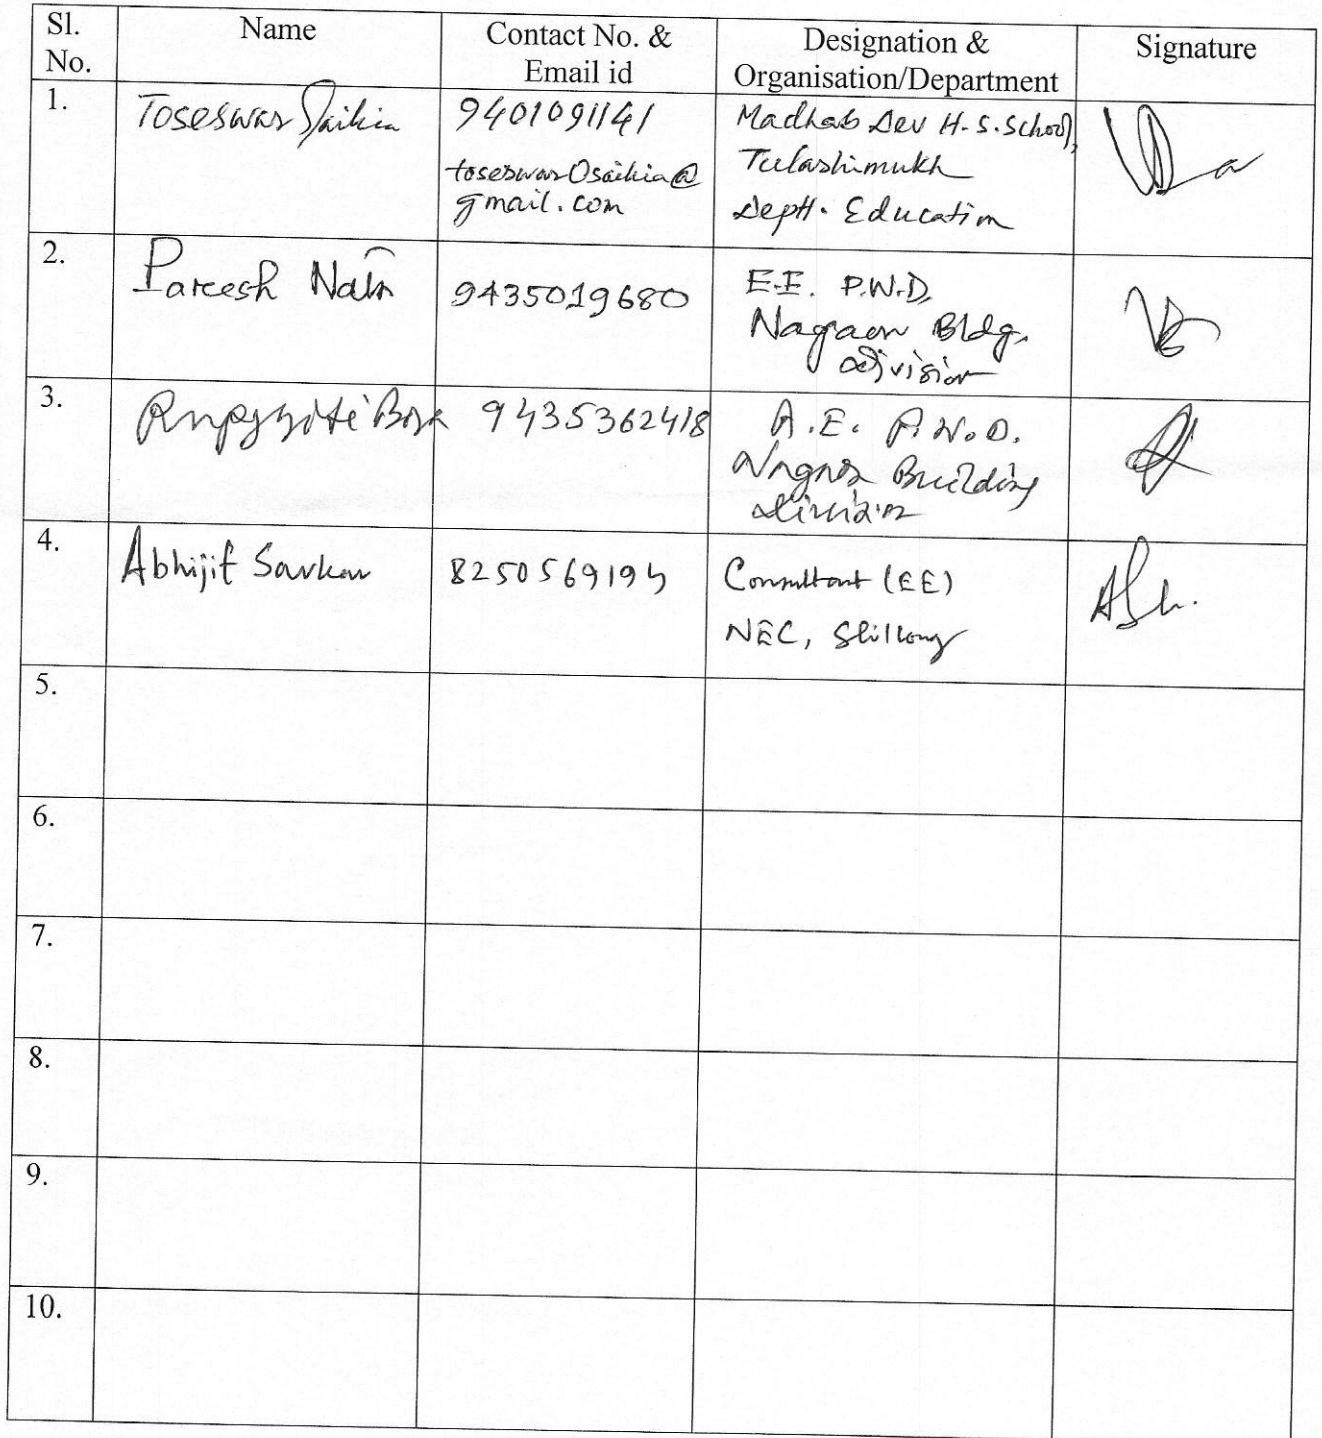 Sl. No.
Name
Contact No. & Email id
Designation & Organisation/Department
Signature
1.
Toseswar Saikia
9401091141
toseswar0saikia@
gmail.com
Madhab Dev H.S. School,
Tulashimukh
Deptt. Education
2.
Pareesh Nath
9435019680
E.E. P.W.D,
Nagaon Bldg.
Division
3.
Bora
9435362418
A.E. P.W.D.
Nagaon Building
Division
4.
Abhijit Sarkar
825056919
Consultant (EE)
NEC, Shillong
5.
6.
7.
8.
9.
10.